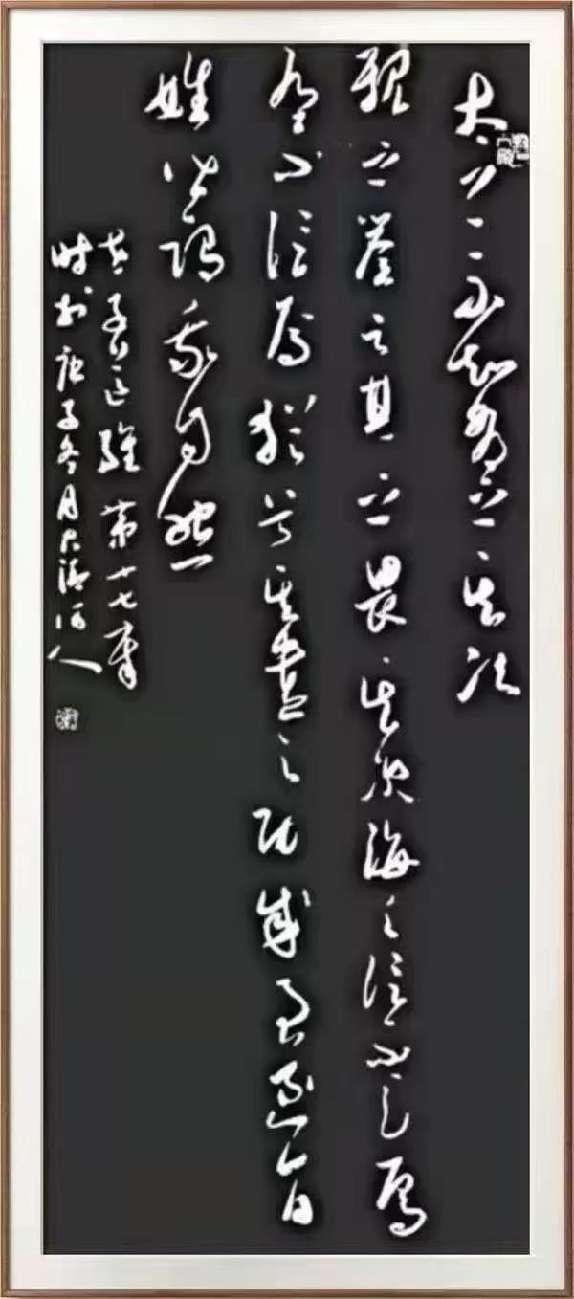 太上不知有之其次
親之譽之其之畏其次侮之信不足焉
有不信焉猶兮其貴言功成事遂百
姓皆謂我自然
老子道經第十七章
時於庚子冬月清河人